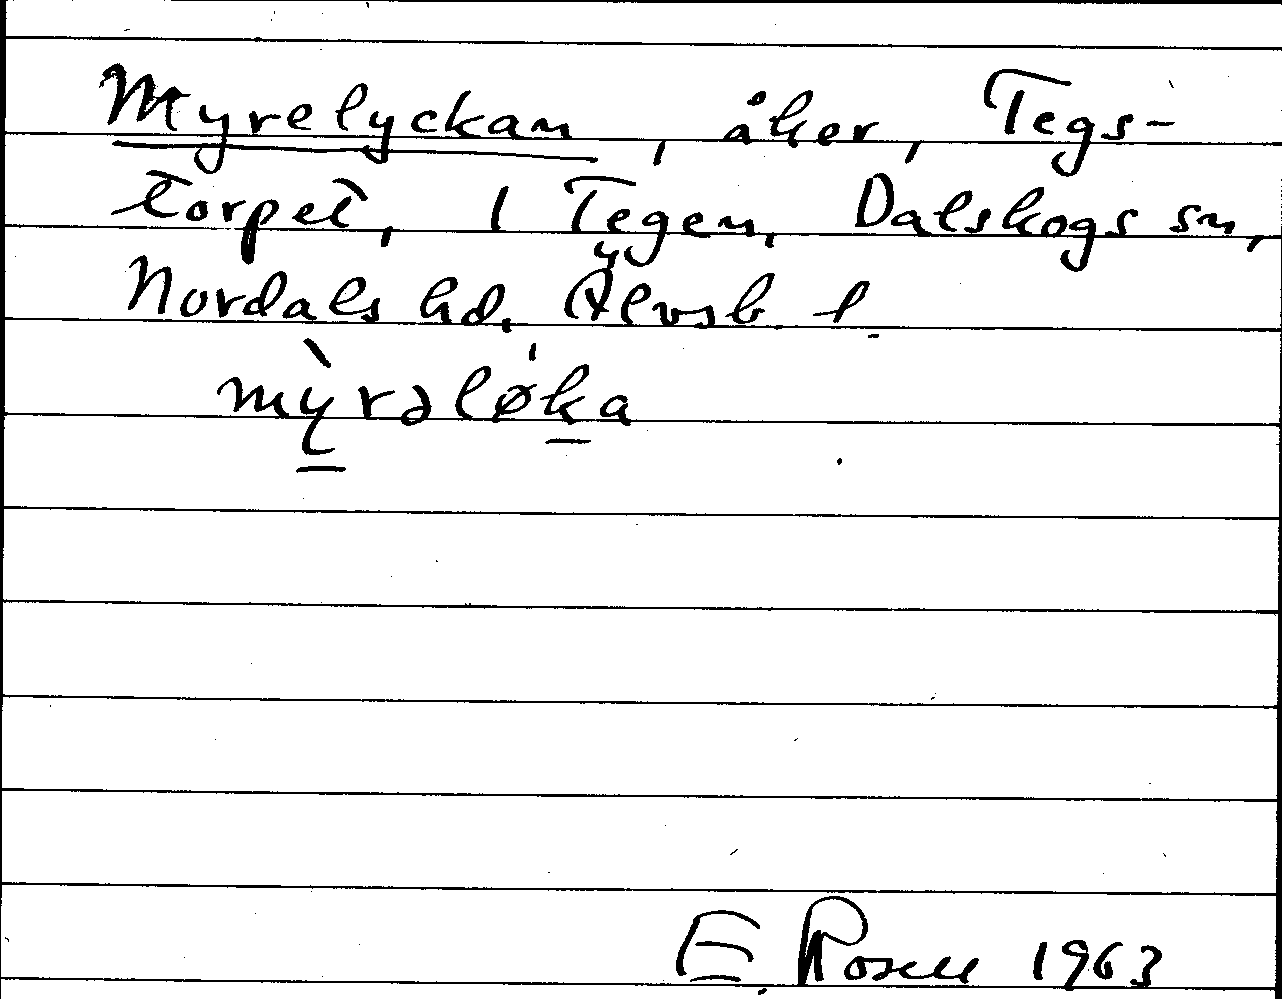 Myrelyckan, åker, Tegs-
torpet, 1 Tegen, Dalskogs sn,
Nordals hd. Älvsb. l.
mỳrəløka
E. Rosell 1963